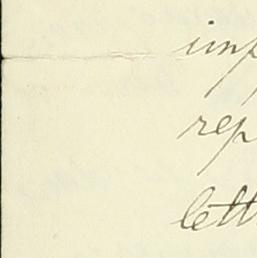 imp
rep
lett